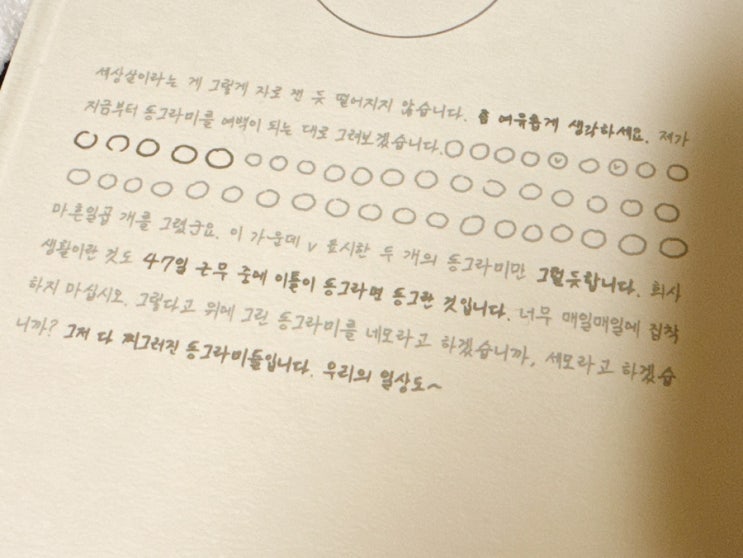 세상살이라는 게 그렇게 자로 잰 듯 떨어지지 않습니다. 좀 여유롭게 생각하세요. 제가
지금부터 동그라미를 여백이 되는 대로 그려보겠습니다.
마흔일곱 개를 그렸군요. 이 가운데 v 표시한 두 개의 동그라미만 그럴듯합니다. 회사
생활이란 것도 47일 근무 중에 이틀이 동그라면 동그란 것입니다. 너무 매일매일에 집착
하지 마십시오. 그렇다고 위에 그린 동그라미를 네모라고 하겠습니까, 세모라고 하겠습
니까? 그저 다 찌그러진 동그라미들입니다. 우리의 일상도~